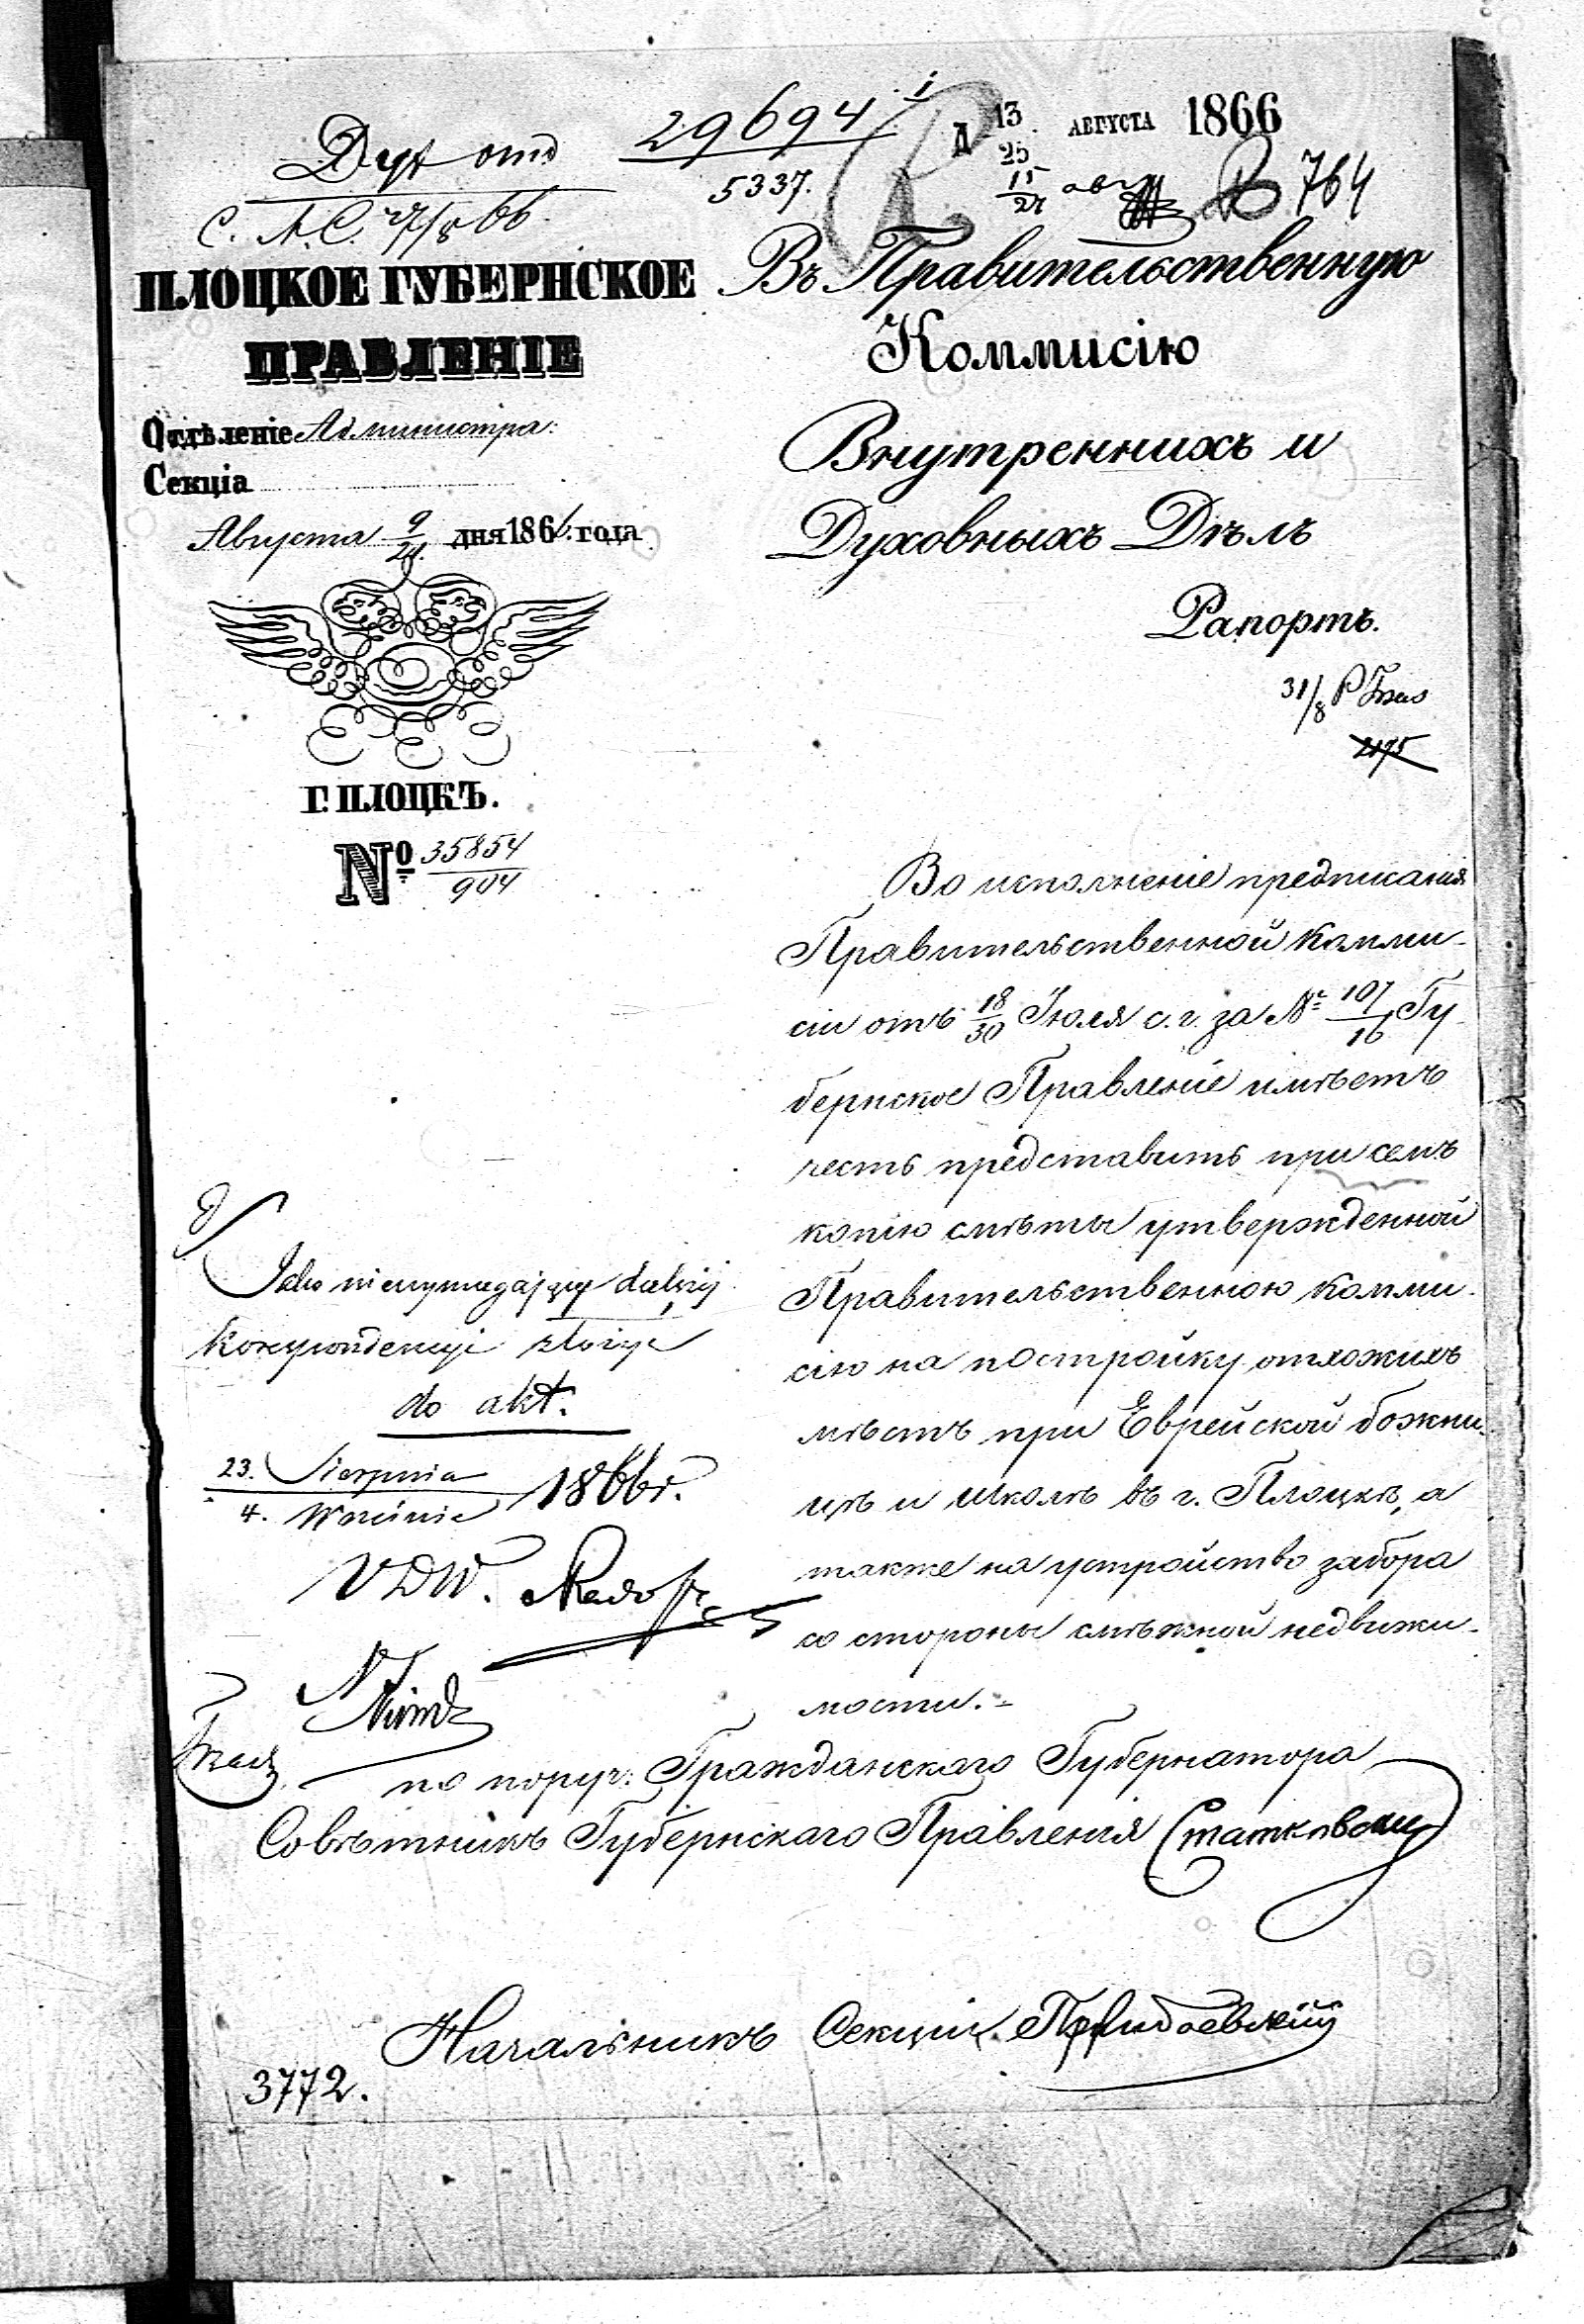 29694
5337.
13 АВГУСТА 1866
25
15
27 авг
764
ПЛОЦКОЕ ГУБЕРНСКОЕ
ПРАВЛЕНІЕ
Отдѣленіе Администра:
Секціа
Августа 9/21 дня 1866 года
Г. ПЛОЦКЪ.
№ 35854/904
Въ Правительственную
Коммисію
Внутреннихъ и
Духовныхъ Дѣлъ
Рапортъ.
31/8
2175
Во исполненіе предписанія
Правительственной Комми-
сіи отъ 18/30 Іюля с. г. за № 107/16 Гу-
бернское Правленіе имѣетъ
честь представить при семъ
копію смѣты утвержденной
Правительственною Комми-
сіею на постройку отхожихъ
мѣстъ при Еврейской божни-
цѣ и школѣ въ г. Плоцкѣ, а
также на устройство забора
со стороны смѣжной недвижи-
мости.-
Jako niewymagające dalszej
korespondencji złożyć
do akt.
23. Sierpnia
4. Września 1866 r.
VDW.
по поруч: Гражданскаго Губернатора
Совѣтникъ Губернскаго Правленія Статковскій
Начальникъ Секціи
3772.